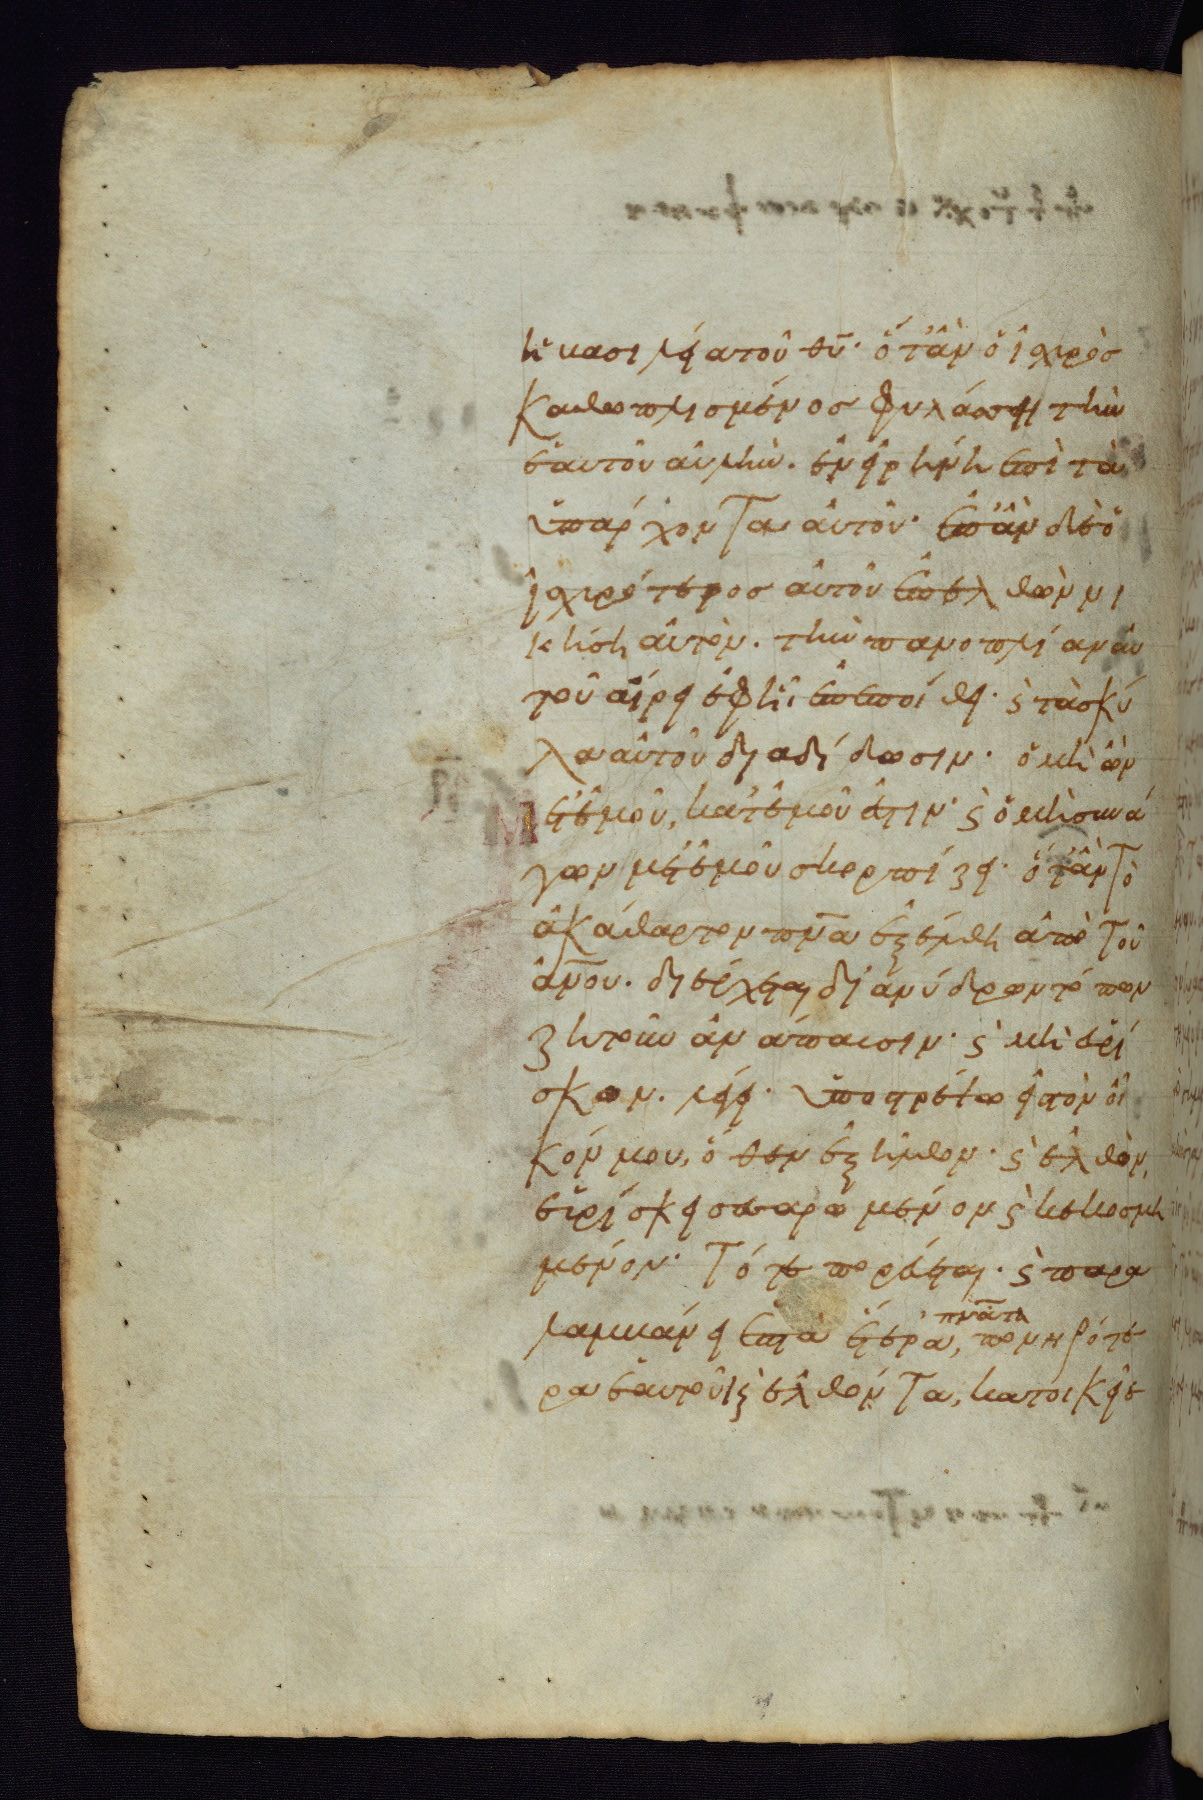 ἡ βασιλεία τοῦ θ̅υ̅· ὅτἂν ὁ ἰσχυρὸσ
καθωπλισμένοσ φυλάσσει τὴν
ἑαυτοῦ αὐλὴν. ἐν εἰρήνη ἐστὶ τὰ
ὑπάρχοντα αὐτοῦ· ἐπἂν δὲ ὁ
ἰσχυρότεροσ αὐτοῦ ἐπελθὼν νι
κήση αὐτὸν. τὴν πανοπλίαν αὐ
τοῦ αἴρει ἐφ ἧ ἐπεποίθει· ϛ̀ τὰ σκύ
λα αὐτοῦ διαδίδωσιν· ὁ μὴ ὢν
μετ ἐμοῦ, κατ ἐμοῦ ἐστιν· ϛ̀ ὁ μὴ συνά
γων μετ ἐμοῦ σκορπίζει· ὅτἂν τὸ
ἀκάθαρτον π̅ν̅α̅ ἐξέλθη ἀπὸ τοῦ
ἀ̅ν̅ο̅υ̅. διέρχεται δι ἀνύδρων τόπων
ζητοῦν ἀνάπαυσιν· ϛ̀ μὴ εὑρί
σκων. λέγει· ὑποστρέψω εἰς τὸν οἶ
κόν μου, ὅθεν ἐξῆλθον· ϛ̀ ἐλθὸν,
εὑρίσκει σεσαρωμένον ϛ̀ κεκοσμη
μένον· τότε πορεύεται· ϛ̀ παρα
λαμβάνει ἑπτὰ ἕτερα, π̅ν̅α̅τα πονηρότε
ρα ἑαυτοῦ ϛ̀ ἐλθόντα, κατοικεῖ ἐ